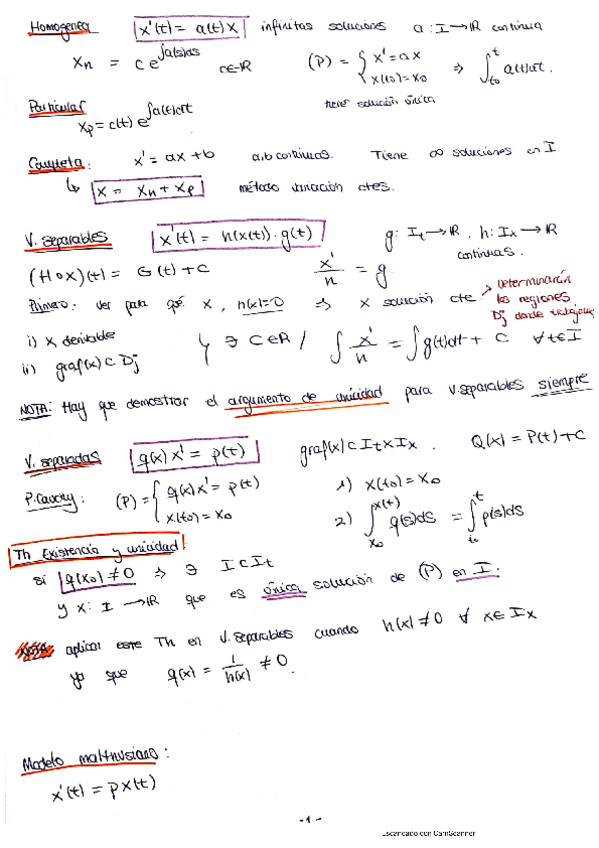 Homogenea x'(t) = a(t)x infinitas soluciones a: I → IR continua
Xn = c e^∫a(s)ds c∈IR (P) = { x' = ax x(t0) = x0 ⇒ ∫_{t0}^{t} a(t)dt.
tiene solución única
Particular
Xp = c(t) e^∫a(t)dt
Completa: x' = ax + b a,b continuas. Tiene ∞ soluciones en I
↳ X = Xn + Xp método variación ctes.
V. separables x'(t) = h(x(t)) · g(t) g: It → IR, h: Ix → IR
continuas.
(H∘X)(t) = G(t) + C x'/h = g
Primero: Ver para qué x, h(x)=0 ⇒ x solución cte → Determinarán
las regiones
Dj donde trabajar
i) x derivable
ii) graf(x) ⊂ Dj y ∃ C∈R / ∫ x'/h = ∫g(t)dt + C ∀t∈I
NOTA: Hay que demostrar el argumento de unicidad para v.separables siempre
V. separadas q(x) x' = p(t) graf(x) ⊂ It×Ix. Q(x) = P(t) + C
P. Cauchy: (P) = { q(x)x' = p(t) x(t0) = x0
1) x(t0) = x0
2) ∫_{x0}^{x(t)} q(s)ds = ∫_{t0}^{t} p(s)ds
Th Existencia y unicidad
si q(x0) ≠ 0 ⇒ ∃ I ⊂ It
y x: I → IR que es única solución de (P) en I.
NOTA: aplicar este Th en V. Separables cuando h(x) ≠ 0 ∀ x∈Ix
ya que q(x) = 1/h(x) ≠ 0.
Modelo malthusiano:
x'(t) = px(t)
-1-
Escaneado con CamScanner